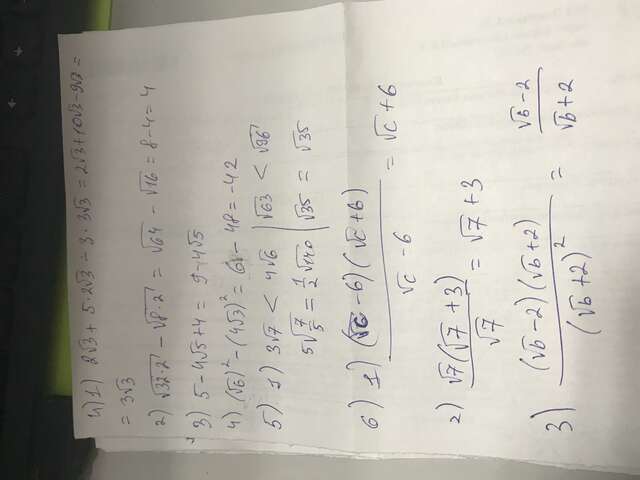 4) 1) 2√3 + 5·2√3 − 3·3√3 = 2√3 + 10√3 − 9√3 =
= 3√3
2) √32·2 − √8·2 = √64 − √16 = 8 − 4 = 4
3) 5 − 4√5 + 4 = 9 − 4√5
4) (√6)² − (4√3)² = 6 − 48 = −42
5) 1) 3√7 < 4√6 | √63 < √96
5√7/5 = 1/2√140 | √35 = √35
6) 1) (√c − 6)(√c + 6) / √c − 6 = √c + 6
2) √7(√7 + 3) / √7 = √7 + 3
3) (√b − 2)(√b + 2) / (√b + 2)² = √b − 2 / √b + 2